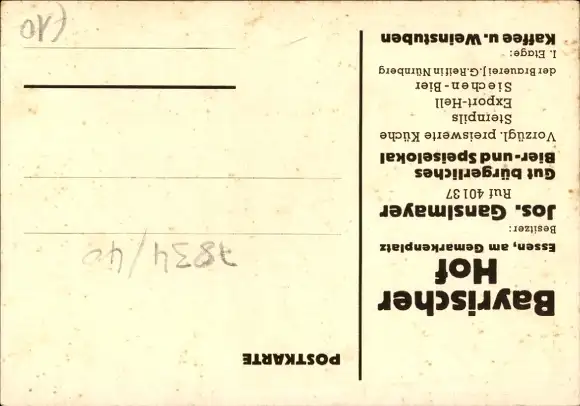 Bayrischer
Hof
Essen, am Gemarkenplatz
Besitzer:
Jos. Ganslmayer
Ruf 40137
Gut bürgerliches
Bier- und Speiselokal
Vorzügl. preiswerte Küche
Sternpils
Export-Hell
Siechen-Bier
der Brauerei J.G.Reif in Nürnberg
1. Etage:
Kaffee u. Weinstuben
POSTKARTE
7834/40